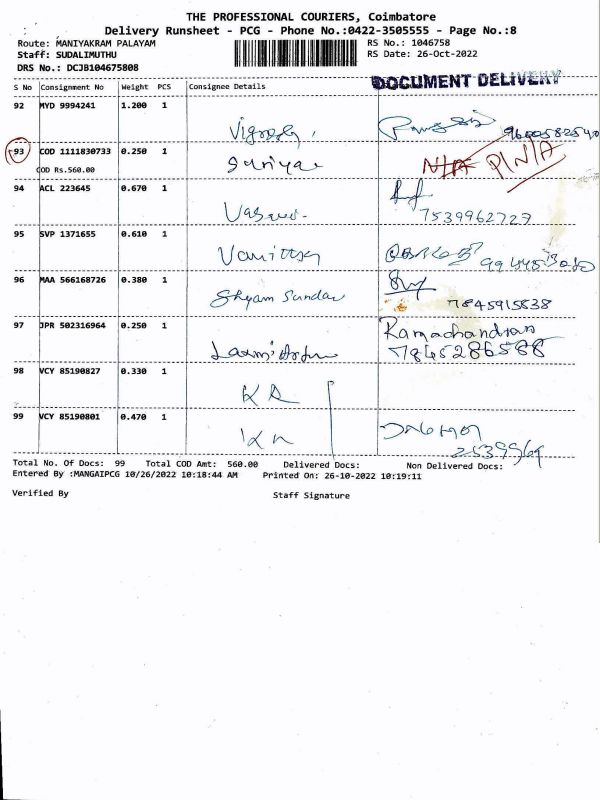 THE PROFESSIONAL COURIERS, Coimbatore
Delivery Runsheet - PCG - Phone No.:0422-3505555 - Page No.:8
Route: MANIYAKRAM PALAYAM
RS No.: 1046758
Staff: SUDALIMUTHU
RS Date: 26-Oct-2022
DRS No.: DCJB104675808
DOCUMENT DELIVERY
S No Consignment No Weight PCS Consignee Details
92 MYD 9994241 1.200 1
Vignesh
93 COD 1111830733 0.250 1 Suriya N/A P/N/A
COD Rs.560.00
94 ACL 223645 0.670 1
7539962727
95 SVP 1371655 0.610 1
96 MAA 566168726 0.380 1
Shyam Sundar 7845915838
97 JPR 502316964 0.250 1 Ramachandran
7845286588
98 VCY 85190827 0.330 1
KR
99 VCY 85190801 0.470 1
Total No. Of Docs: 99 Total COD Amt: 560.00 Delivered Docs: Non Delivered Docs:
Entered By :MANGAIPCG 10/26/2022 10:18:44 AM Printed On: 26-10-2022 10:19:11
Verified By Staff Signature